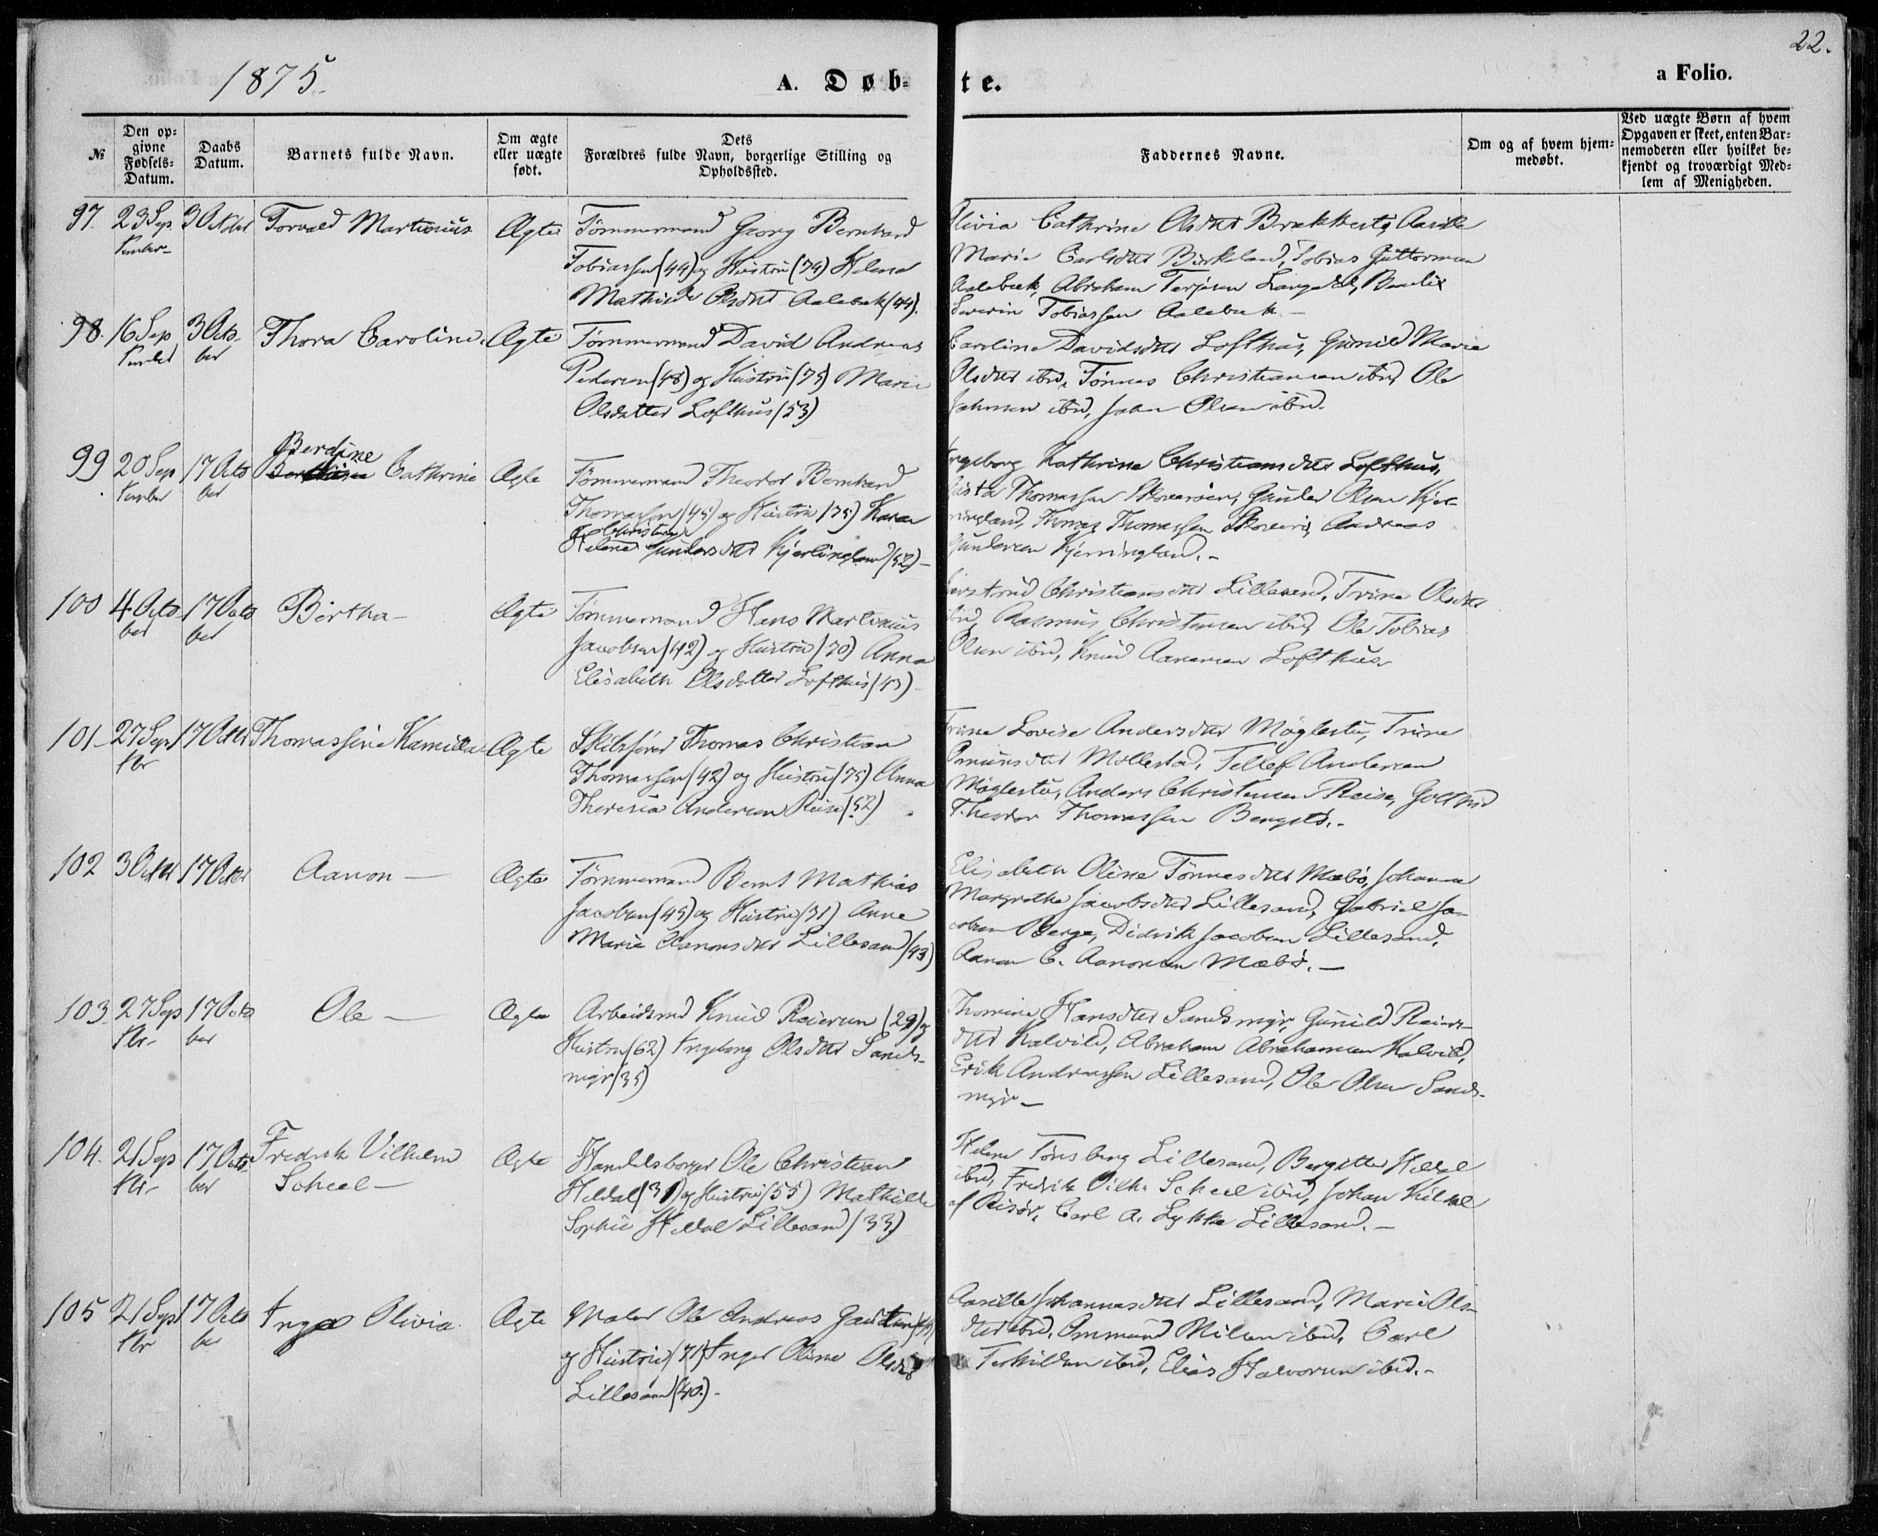 22.
1875.
A. Døbte.
a Folio.
№
Den opgivne Fødsels-Datum.
Daabs Datum.
Barnets fulde Navn.
Om ægte eller uægte født.
Dets Forældres fulde Navn, borgerlige Stilling og Opholdssted.
Faddernes Navne.
Om og af hvem hjemmedøbt.
Ved uægte Børn af hvem Opgaven er skeet, enten Barnemoderen eller hvilket bekjendt og troværdigt Medlem af Menigheden.
97. 23 Sep 3 Octbr Torvald Martinius Ægte Tømmermand Georg Bernhard
Tobiassen (44) og Hustru (74) Helene
Mathilde Olsdtr Aalebek (44).
Olivia Cathrine Olsdtr Brekkestø,
Marie Carlsdtr Birkeland, Tobias Guttormsen
Aalebek, Abraham Terjesen
Severin Tobiassen Aalebek. –
98. 16 Sep 3 Octo Thora Caroline. Ægte Tømmermand David Andreas
tember ber Pedersen (48) og Hustru (75) Marie
Olsdatter Lofthus (53)
Caroline Davidsdtr Lofthus, Gunild Marie
Olsdtr ibid, Tønnes Christiansen ibid, Ole
Johnsen ibid, John Olsen ibid.
99 20 Sep 17 Octo Berdine Cathrine Ægte Tømmermand Theodor Bernhard
tember ber Thomassen (45) og Hustru (75) Karen
Christense
Helene Gundersdtr Kjerlingland (52) –
Ingeborg Kathrine Christiansdtr Lofthus,
Thomassen Skovrøen, Gunder Olsen Kjer-
ringland, Thomas Thomassen Andreas
Gundersen Kjerringland. –
100 4 Octo 17 Octo Birtha – Ægte Tømmermand Hans Martinius
ber ber Jacobsen (42) og Hustru (70) Anna
Elisabeth Olsdatter Lofthus (43) –
Christiansdtr Lillesand, Trine Olsdtr
ibid, Rasmus Christensen ibid, Ole Tobias
Olsen ibid, Knud Aanonsen Lofthus
101 – 27 Sept 17 Octbr Thomassine Kamilla Ægte Skibsfører Thomas Christian
br Thomassen (42) og Hustru (75) Anna
Theresia Andersen Reise (52)
Trine Lovise Andersdtr Møglestu, Trine
Omundsdtr Mollestad, Tellef Andersen
Møglestu, Anders Christensen Reise,
Theodor Thomassen –
102 3 Octbr 17 Octbr Aanon – Ægte Tømmermand Bernt Mathias
Jacobsen (45) og Hustru (71) Anne
Marie Aanonsdtr Lillesand (43)
Elisabeth Oline Tønnesdtr Mæbø, Johanne
Margrethe Jacobsdtr Lillesand, Gabriel Ja-
cobsen Berge, Didrik Jacobsen Lillesand,
Aanon C. Aanonsen Mæbø. –
103. 27 Sep 17 Octo Ole – Ægte Arbeidsmd Knud Reiersen (29) og
tbr – ber Hustru (62) Ingeborg Olsdtr Sands-
myr (35)
Thomine Hansdtr Sandsmyr, Gunild Reiers-
dtr Kalvild, Abraham Abrahamsen Kalvild,
Erik Andreassen Lillesand, Ole Olsen Sands-
myr –
104. 21 Sep 17 Octo Fredrik Vilhelm Ægte Handelsborger Ole Christian
tbr – ber Scheel – Heldal (31) og Hustru (55) Mathilde
Sophie Heldal Lillesand (33)
Helene Tønsberg Lillesand, Bergitte Heldal
ibid, Fredrik Vilh. Scheel ibid, Johan
af Risør, Carl A. Lykke Lillesand. –
105 21 Sept 17 Octo Inga Olivia Ægte Maler Ole Andreas
br ber og Hustru (71) Inger Oline Olsdtr
Lillesand (40.) –
Aasille Johannesdtr Lillesand, Marie Ols-
dtr ibid, Ommund Nilsen ibid, Carl
Terkildsen ibid, Elias Halvorsen ibid. –